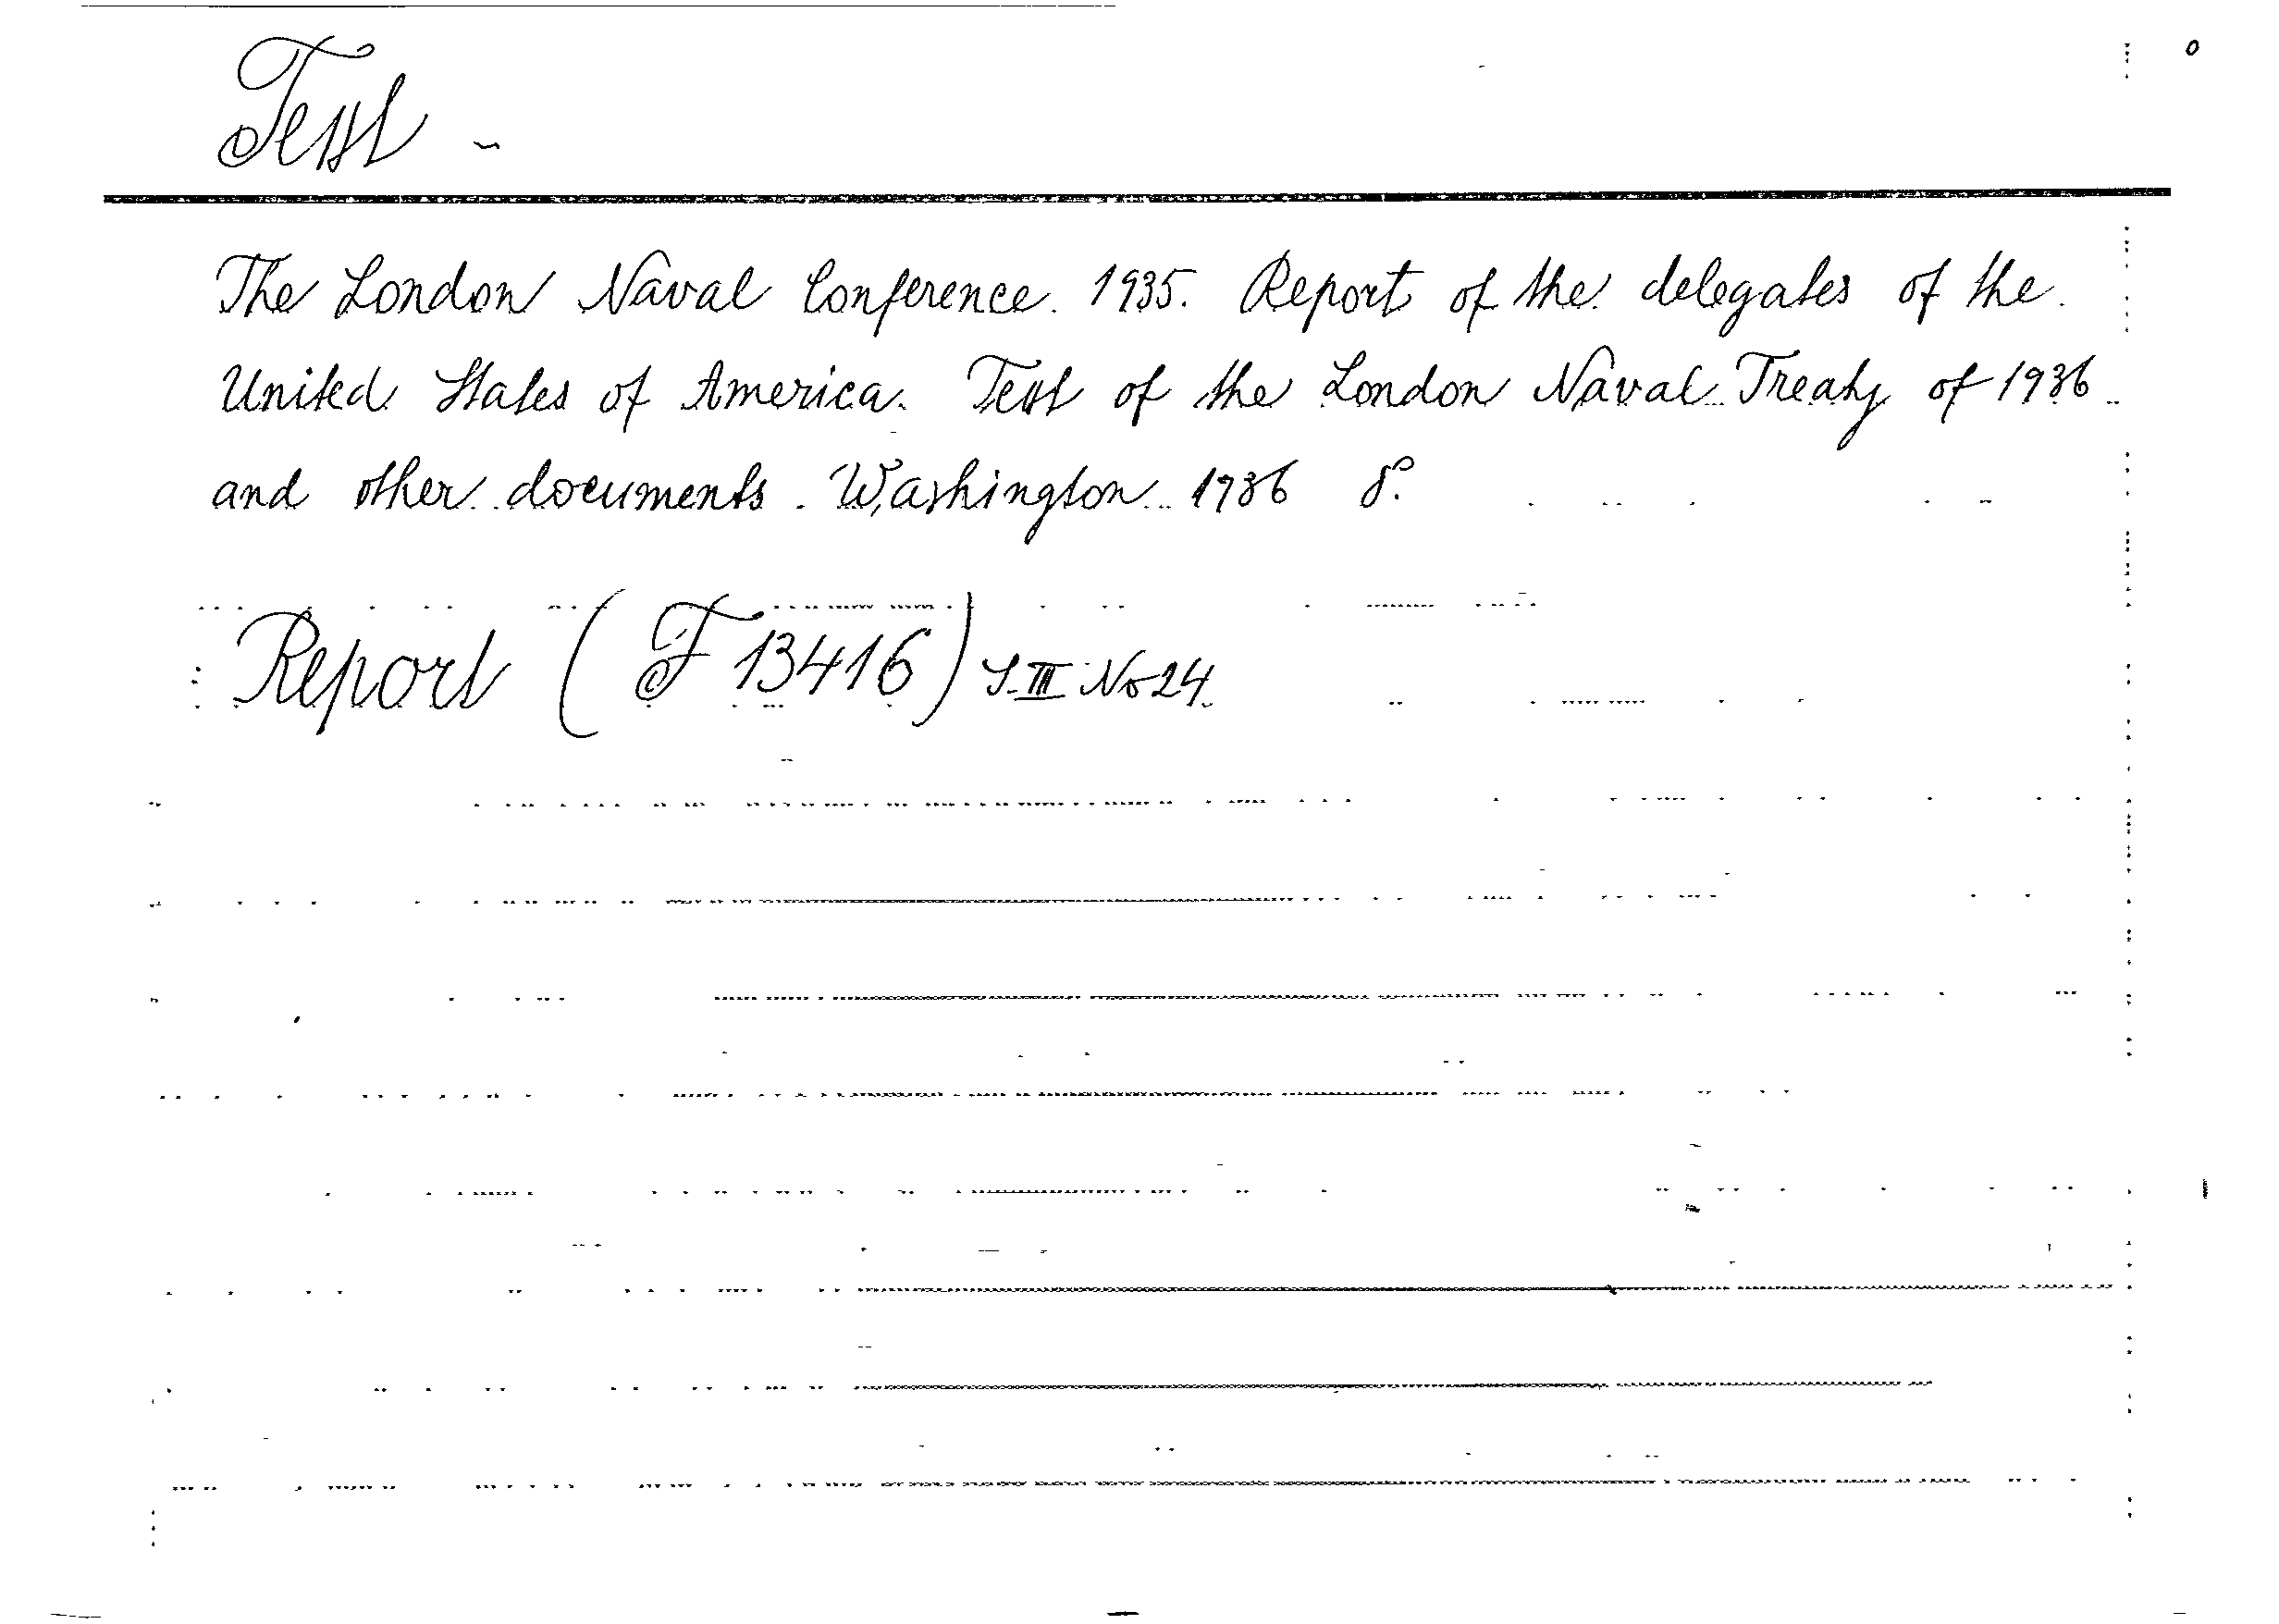 Text -
The London Naval Conference. 1935. Report of the delegates of the
United States of America. Text of the London Naval Treaty of 1936
and other documents. Washington 1936 8°.
Report (F 13416) S. III No 24.